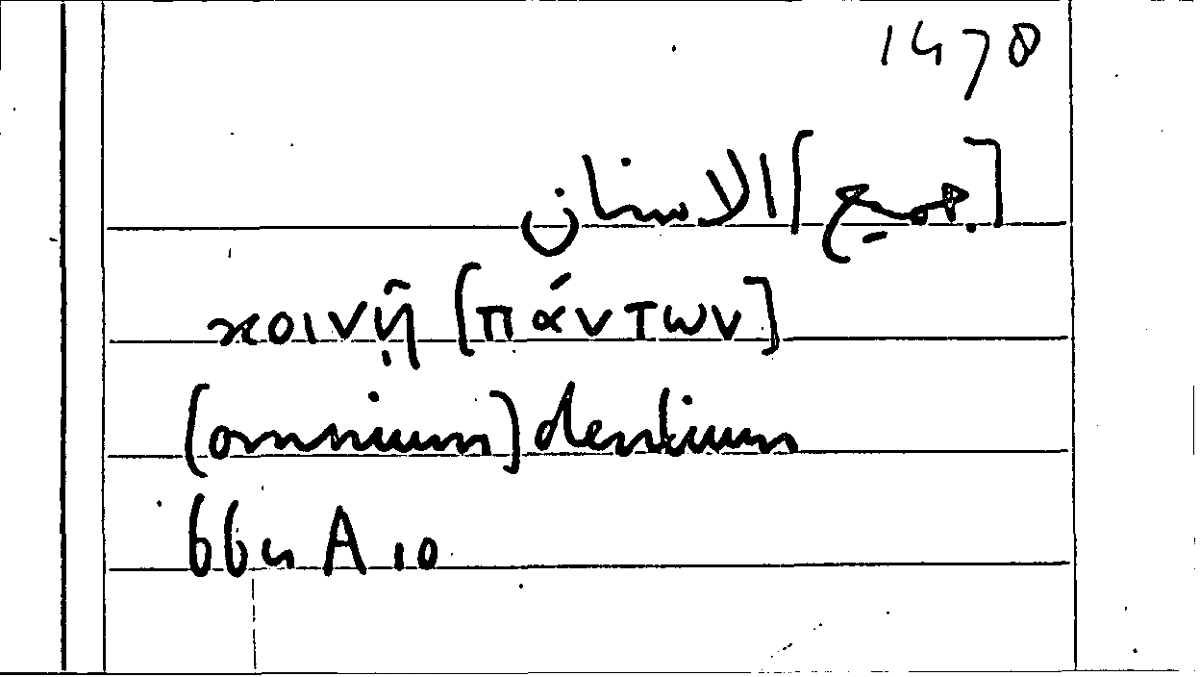 1478
[جميع] الاسنان
κοινῇ [πάντων]
(omnium) dentium
664 A 10